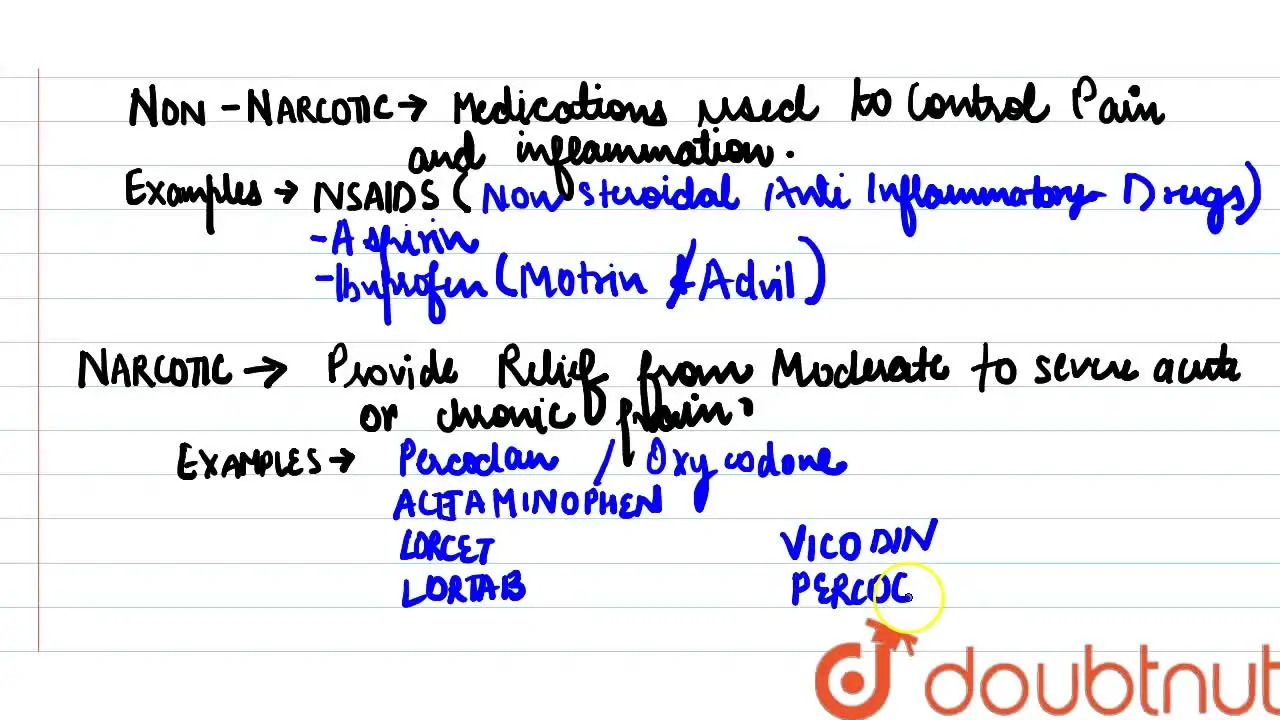 NON-NARCOTIC → Medications used to Control Pain
and inflammation.
Examples → NSAIDS (Non Steroidal Anti Inflammatory Drugs)
- Aspirin
- Ibuprofen (Motrin & Advil)
NARCOTIC → Provide Relief from Moderate to severe acute
or chronic pain.
EXAMPLES → Percodan / Oxycodone
ACETAMINOPHEN
LORCET VICODIN
LORTAB PERCOC
doubtnut